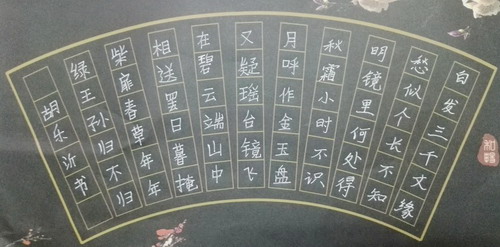 白发三千丈缘
愁似个长不知
明镜里何处得
秋霜小时不识
月呼作金玉盘
又疑瑶台镜飞
在碧云端山中
相送罢日暮掩
柴扉春草年年
绿王孙归不归
胡乐沂书